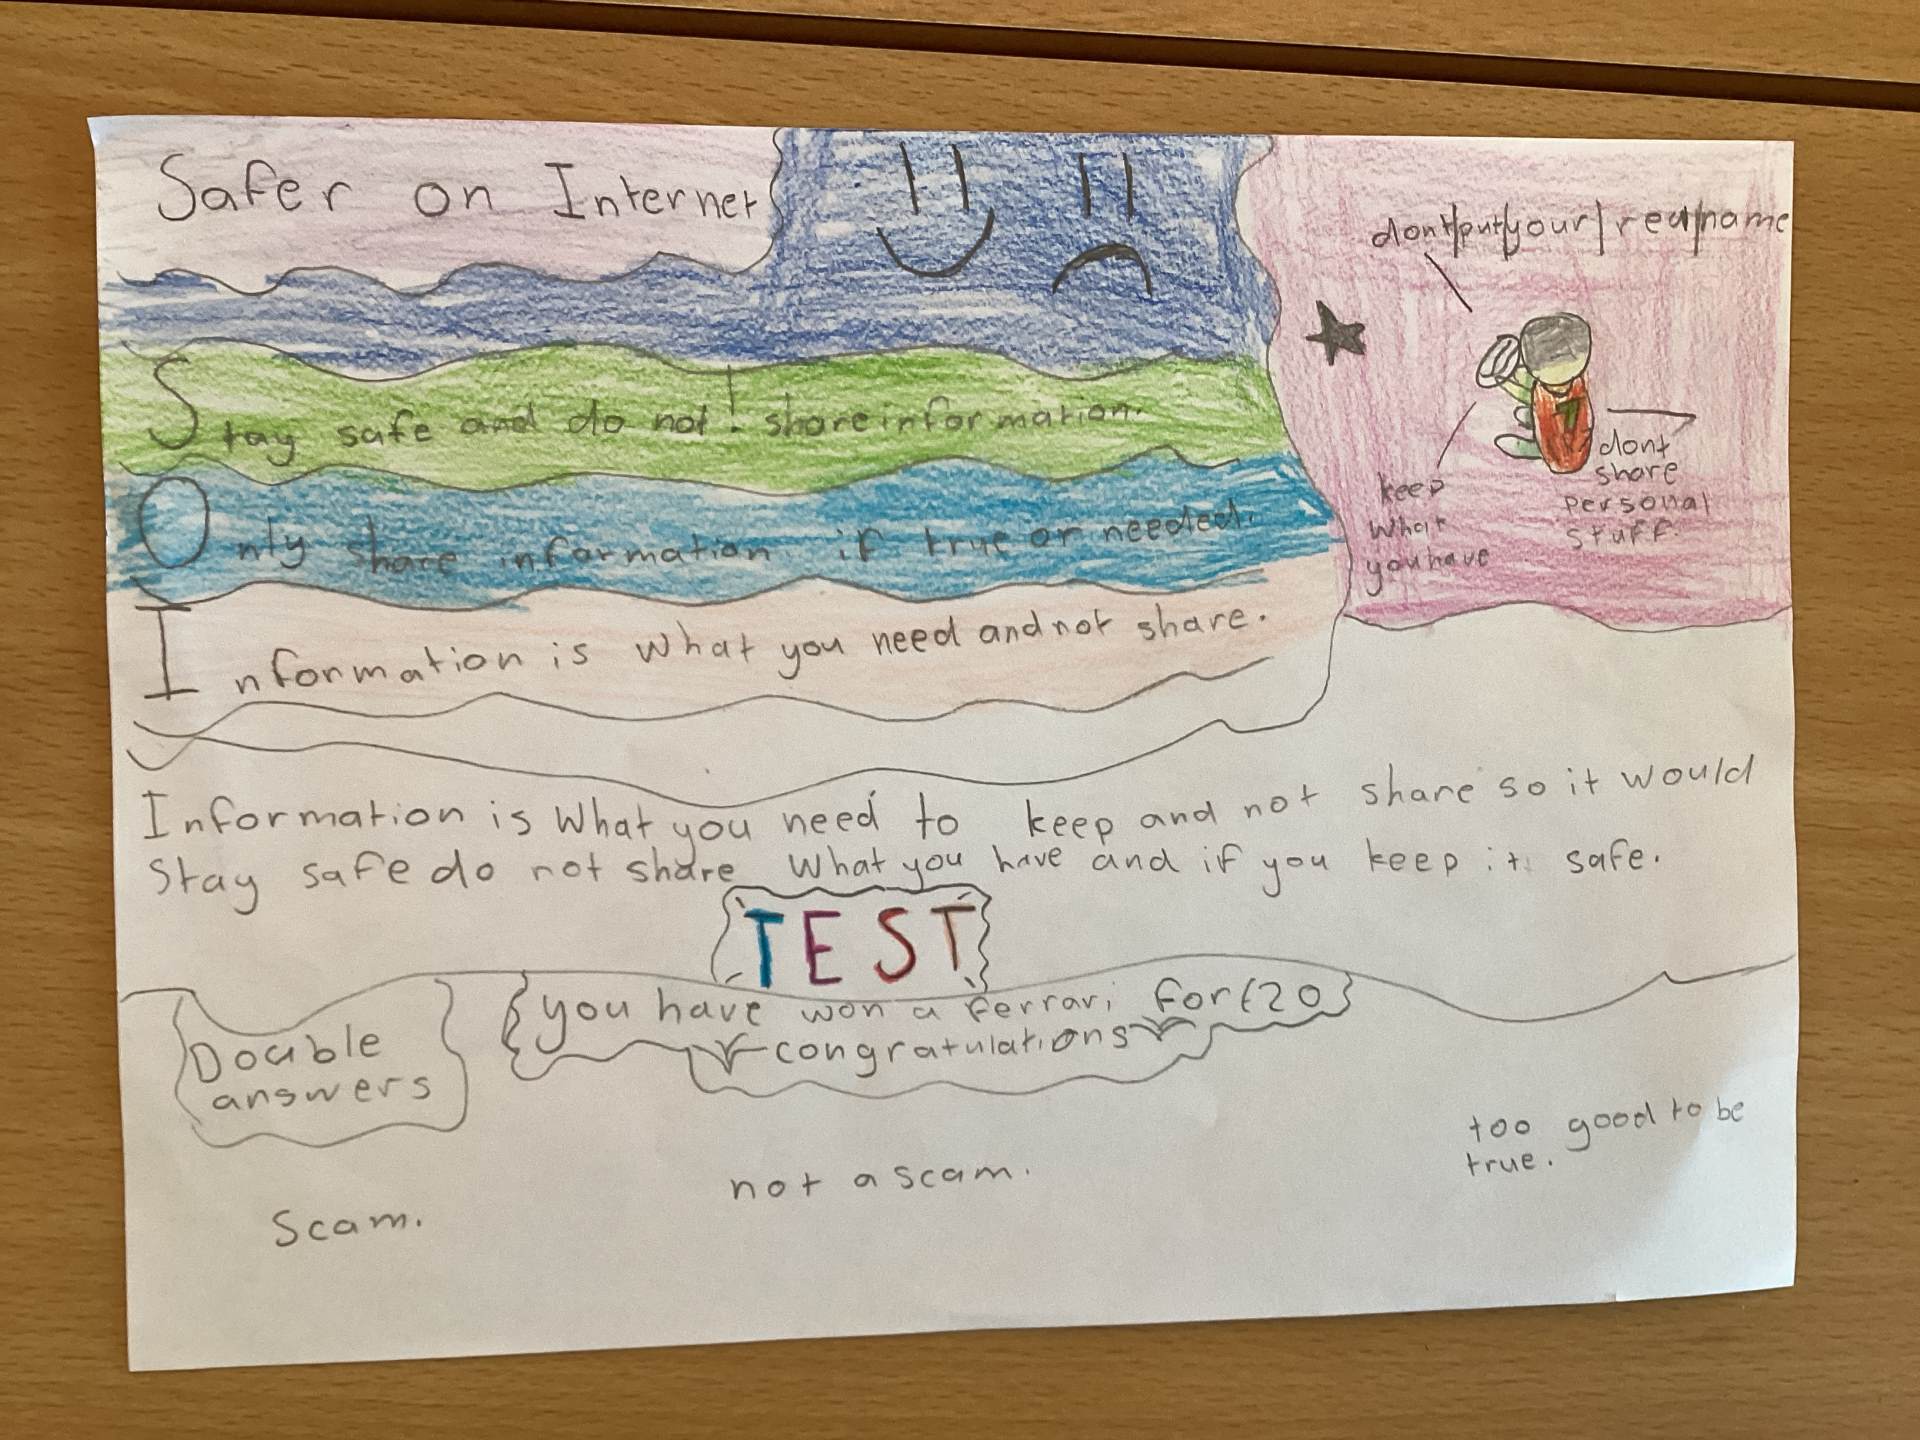 Safer on Internet
dont/put/your/real/name
Stay safe and do not! share information.
keep
what
you have
dont
share
personal
stuff.
Only share information if true or needed.
Information is what you need and not share.
Information is what you need to keep and not share so it would
stay safe do not share what you have and if you keep it safe.
TEST
you have won a ferrari for £20
congratulations
Double
answers
Scam.
not a scam.
too good to be
true.